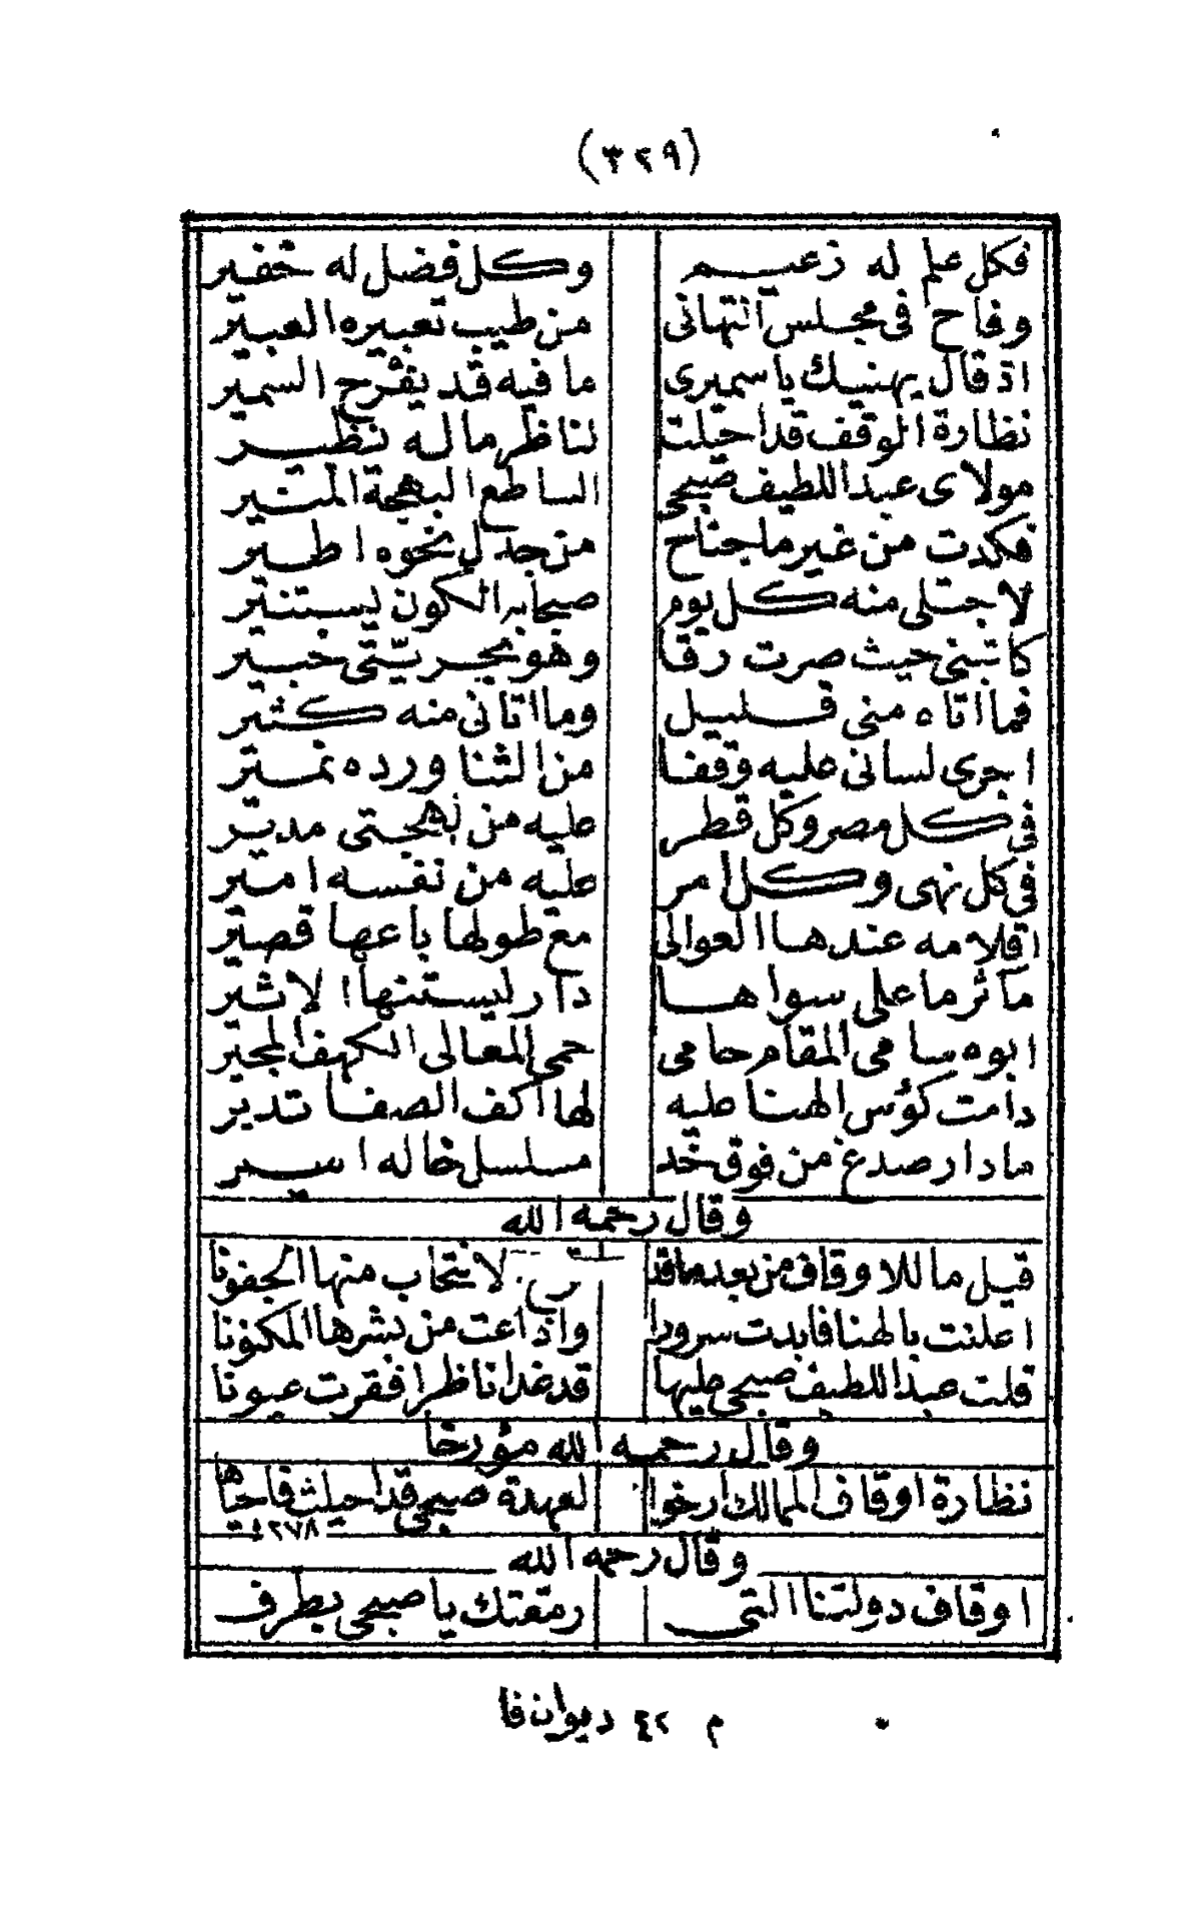 (٣٢٩)
فكل علم له زعيم وكل فضل له خفير
وفاح فى مجلس التهانى من طيب تعبيره العبير
اذ قال يهنيك يا سميرى ما فيه قد يفرح السمير
نظارة الوقف قد احيلت لناظر ما له نظير
مولاى عبد اللطيف صبحى الساطع البهجة المنير
فكدت من غير ما جناح من جدل نحوه اطير
لاجتلى منه كل يوم صبحا به الكون يستنير
كاتبنى حيث صرت رقا وهو بحريتى خبير
فما اتاه منى قليل وما اتانى منه كثير
اجرى لسانى عليه وقفا من الثنا ورده نمير
فى كل مصر وكل قطر عليه من بهجتى مدير
فى كل نهى وكل امر عليه من نفسه امير
اقلامه عندها العوالى مع طولها باعها قصير
مآثر ما على سواها دار ليستنها الاثير
ابوه سامى المقام حامى حمى المعالى الكهف المجير
دامت كؤس الهنا عليه لها اكف الصفا تدير
ما دار صدغ من فوق خد مسلسل خاله اسير
وقال رحمه الله
قيل ما للاوقاف من بعد ما قد لانتحاب منها الجفونا
اعلنت بالهنا فابدت سرورا واذاعت من بشرها المكنونا
قلت عبد اللطيف صبحى عليها قد غدا ناظرا فقرت عيونا
وقال رحمه الله مؤرخا
نظارة اوقاف الممالك ارخوا لعهدة صبحى قد احيلت فاحياها
١٢٧٨
وقال رحمه الله
اوقاف دولتنا التى رمقتك يا صبحى بطرف
م ٤٢ ديوان فا